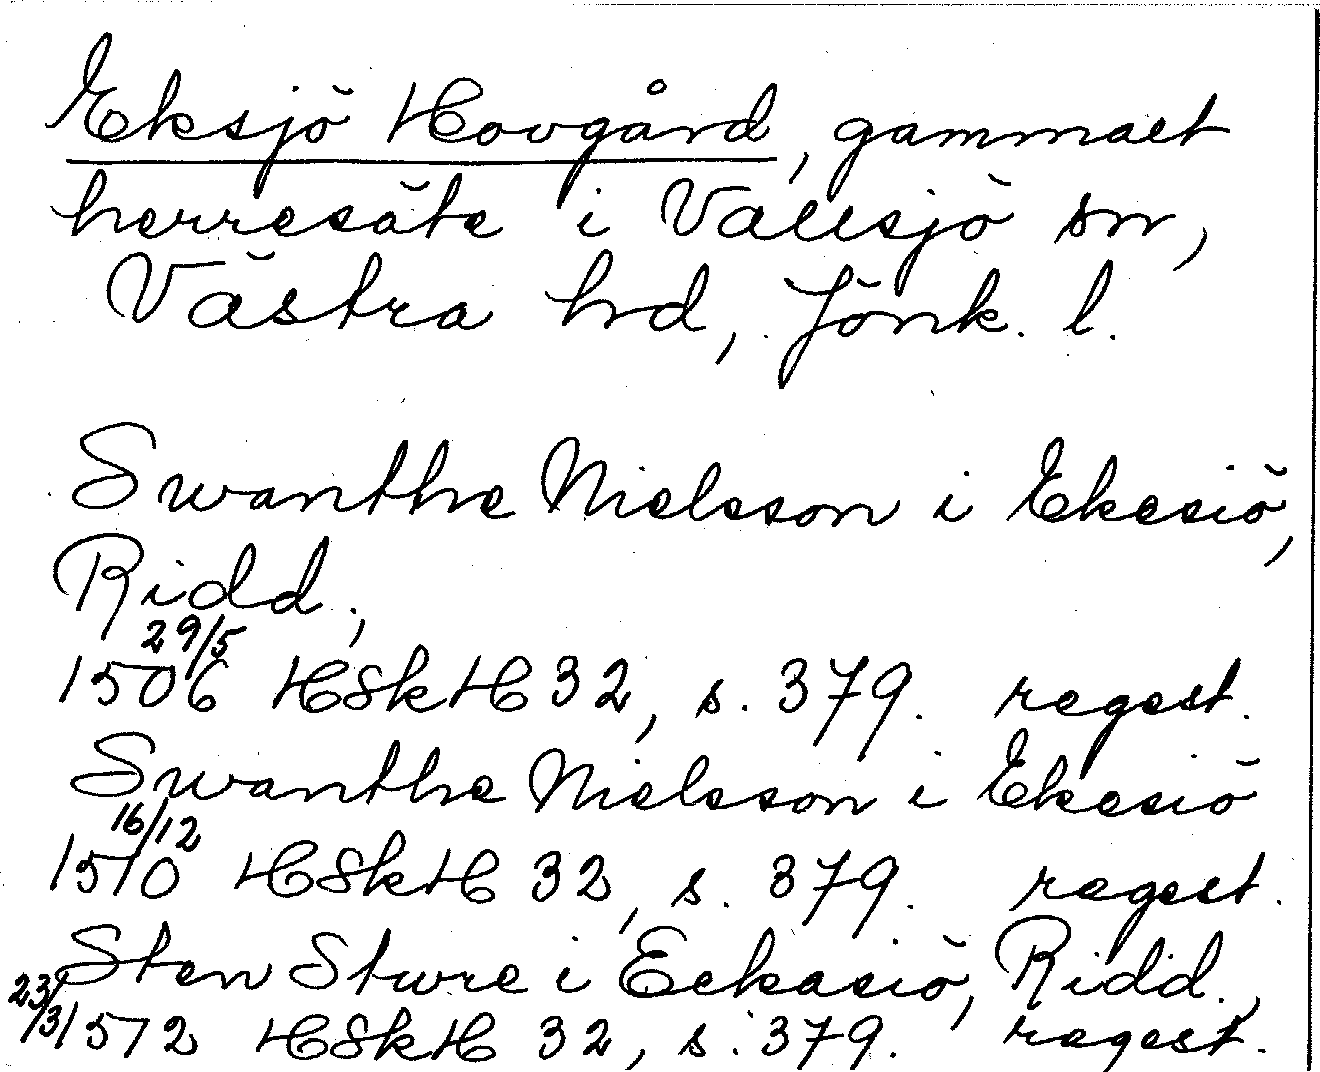 Eksjö Hovgård, gammalt
herresäte i Vallsjö sn,
Västra hd, Jönk. l.
Swanthe Nielsson i Ekesiö,
Ridd.,
29/5
1506 HSkH 32, s. 379. regest.
Swanthe Nielsson i Ekesiö
16/12
1510 HSkH 32, s. 379. regest.
Sten Sture i Eckasiö, Ridd.,
23/3 1512 HSkH 32, s. 379. regest.